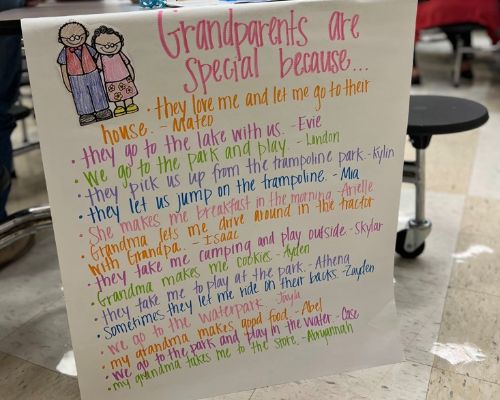 Grandparents are
special because...
• they love me and let me go to their
house. - Mateo
• they go to the lake with us. - Evie
• we go to the park and play. - London
• they pick us up from the trampoline park. - Kylin
• they let us jump on the trampoline. - Mia
• She makes me breakfast in the morning. - Arielle
• Grandma lets me drive around in the tractor
with Grandpa. - Isaac
• they take me camping and play outside. - Skylar
• Grandma makes me cookies. - Ayden
• they take me to play at the park. - Athena
• Sometimes they let me ride on their backs. - Zayden
• we go to the waterpark. Jayla
• my grandma makes good food. - Abel
• we go to the park and play in the water. - Case
• my grandma takes me to the store. - Abryannah